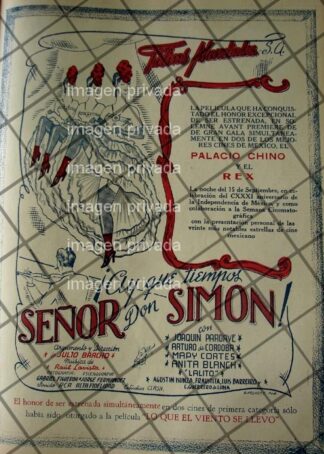 Films Mundiales, S.A.
LA PELICULA QUE HA CONQUIS-
TADO EL HONOR EXCEPCIONAL
DE SER ESTRENADA, EN SO-
LEMNE AVANT PREMIERE DE
DE GRAN GALA SIMULTANEA-
MENTE EN DOS DE LOS MEJO-
RES CINES DE MEXICO, EL
PALACIO CHINO
Y EL
REX
La noche del 15 de Septiembre, en ce-
lebración del CXXXI aniversario de
la Independencia de México y como
colaboración a la Semana Cinemato-
gráfica
con la presentación personal de las
veinte más notables estrellas de cine
mexicano
¡Ay que tiempos
SEÑOR Don SIMON!
con
JOAQUIN PARDAVE
ARTURO de CORDOBA
MAPY CORTES
ANITA BLANCH
"LALITO"
Argumento y Dirección
de JULIO BRACHO
Música de
Raúl Lavista
El honor de ser estrenada simultáneamente en dos cines de primera categoría sólo
había sido otorgado a la película "LO QUE EL VIENTO SE LLEVO"
imagen privada
imagen privada
imagen privada
imagen privada
imagen privada
imagen privada
imagen privada
imagen privada